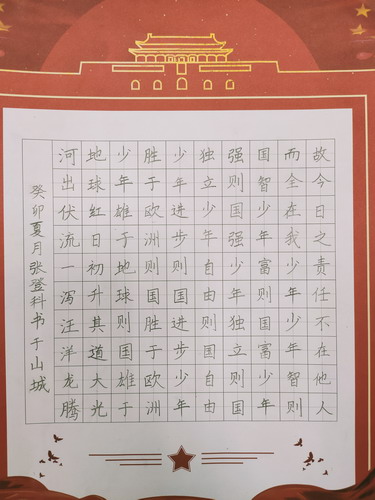 故今日之责任不在他人
而全在我少年少年智则
国智少年富则国富少年
强则国强少年独立则国
独立少年自由则国自由
少年进步则国进步少年
胜于欧洲则国胜于欧洲
少年雄于地球则国雄于
地球红日初升其道大光
河出伏流一泻汪洋龙腾
癸卯夏月张登科书于山城